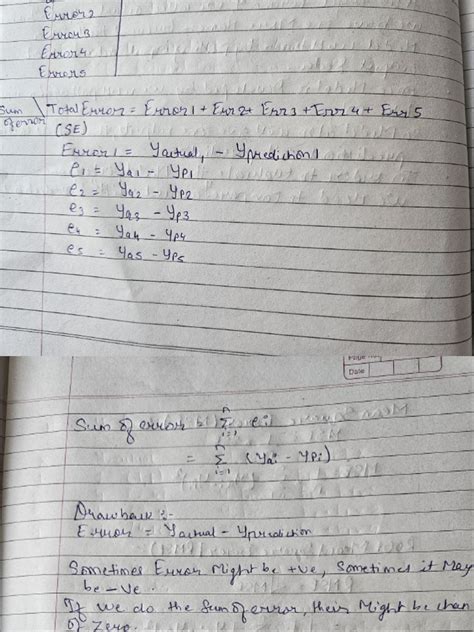 Error2
Error3
Error4
Error5
Sum of error \ Total Error = Error1 + Err2 + Err3 + Err4 + Err5
(SE)
Error1 = Yactual1 - Yprediction1
e1 = Ya1 - Yp1
e2 = Ya2 - Yp2
e3 = Ya3 - Yp3
e4 = Ya4 - Yp4
e5 = Ya5 - Yp5
Page No.
Date
Sum of error is n∑i=1 ei
= n∑i=1 (Yai - Ypi)
Drawback :-
Error = Yactual - Yprediction
Sometimes Error Might be +ve, Sometimes it May
be -ve.
If we do the Sum of error, their Might be chan
of Zero.